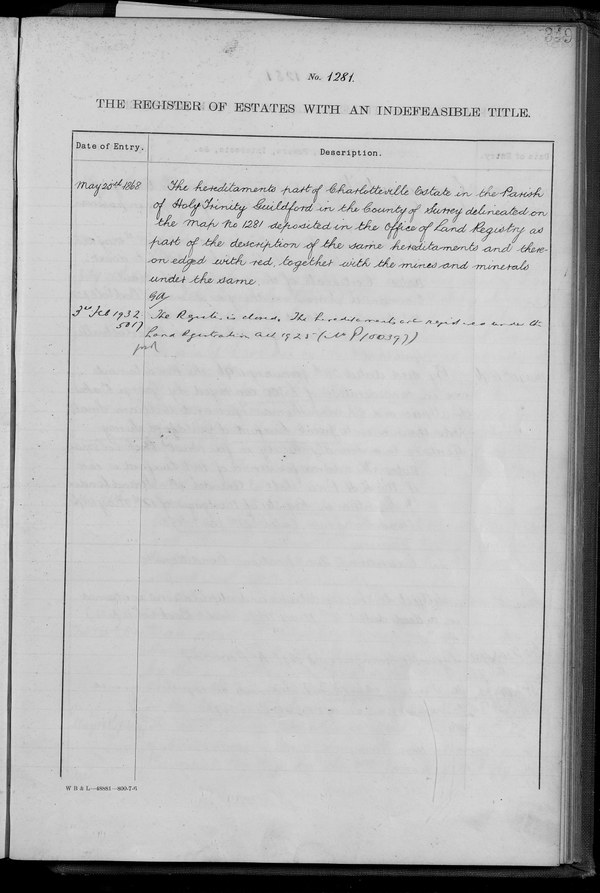 No. 1281.
THE REGISTER OF ESTATES WITH AN INDEFEASIBLE TITLE.
Date of Entry.
Description.
May 20th 1868
The hereditaments part of Charlotteville Estate in the Parish
of Holy Trinity Guildford in the County of Surrey delineated on
the Map No 1281 deposited in the Office of Land Registry as
part of the description of the same hereditaments and there-
on edged with red, together with the mines and minerals
under the same.
3rd Feb 1932
The Register is closed, The hereditaments are registered under the
Land Registration Act 1925
W B & L—48861—800-7-6